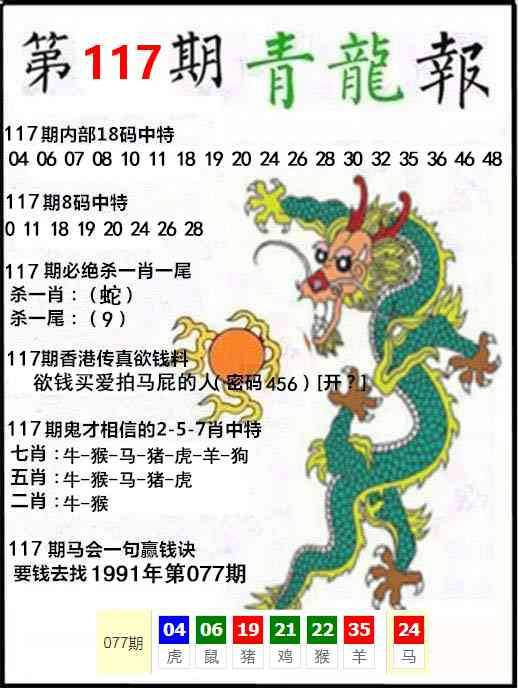 第117期青龍報
117期内部18码中特
04 06 07 08 10 11 18 19 20 24 26 28 30 32 35 36 46 48
117期8码中特
0 11 18 19 20 24 26 28
117期必绝杀一肖一尾
杀一肖：（蛇）
杀一尾：（9）
117期香港传真欲钱料
欲钱买爱拍马屁的人(密码456)[开？]
117期鬼才相信的2-5-7肖中特
七肖：牛-猴-马-猪-虎-羊-狗
五肖：牛-猴-马-猪-虎
二肖：牛-猴
117期马会一句赢钱诀
要钱去找1991年第077期
077期 04 06 19 21 22 35 24
虎 鼠 猪 鸡 猴 羊 马